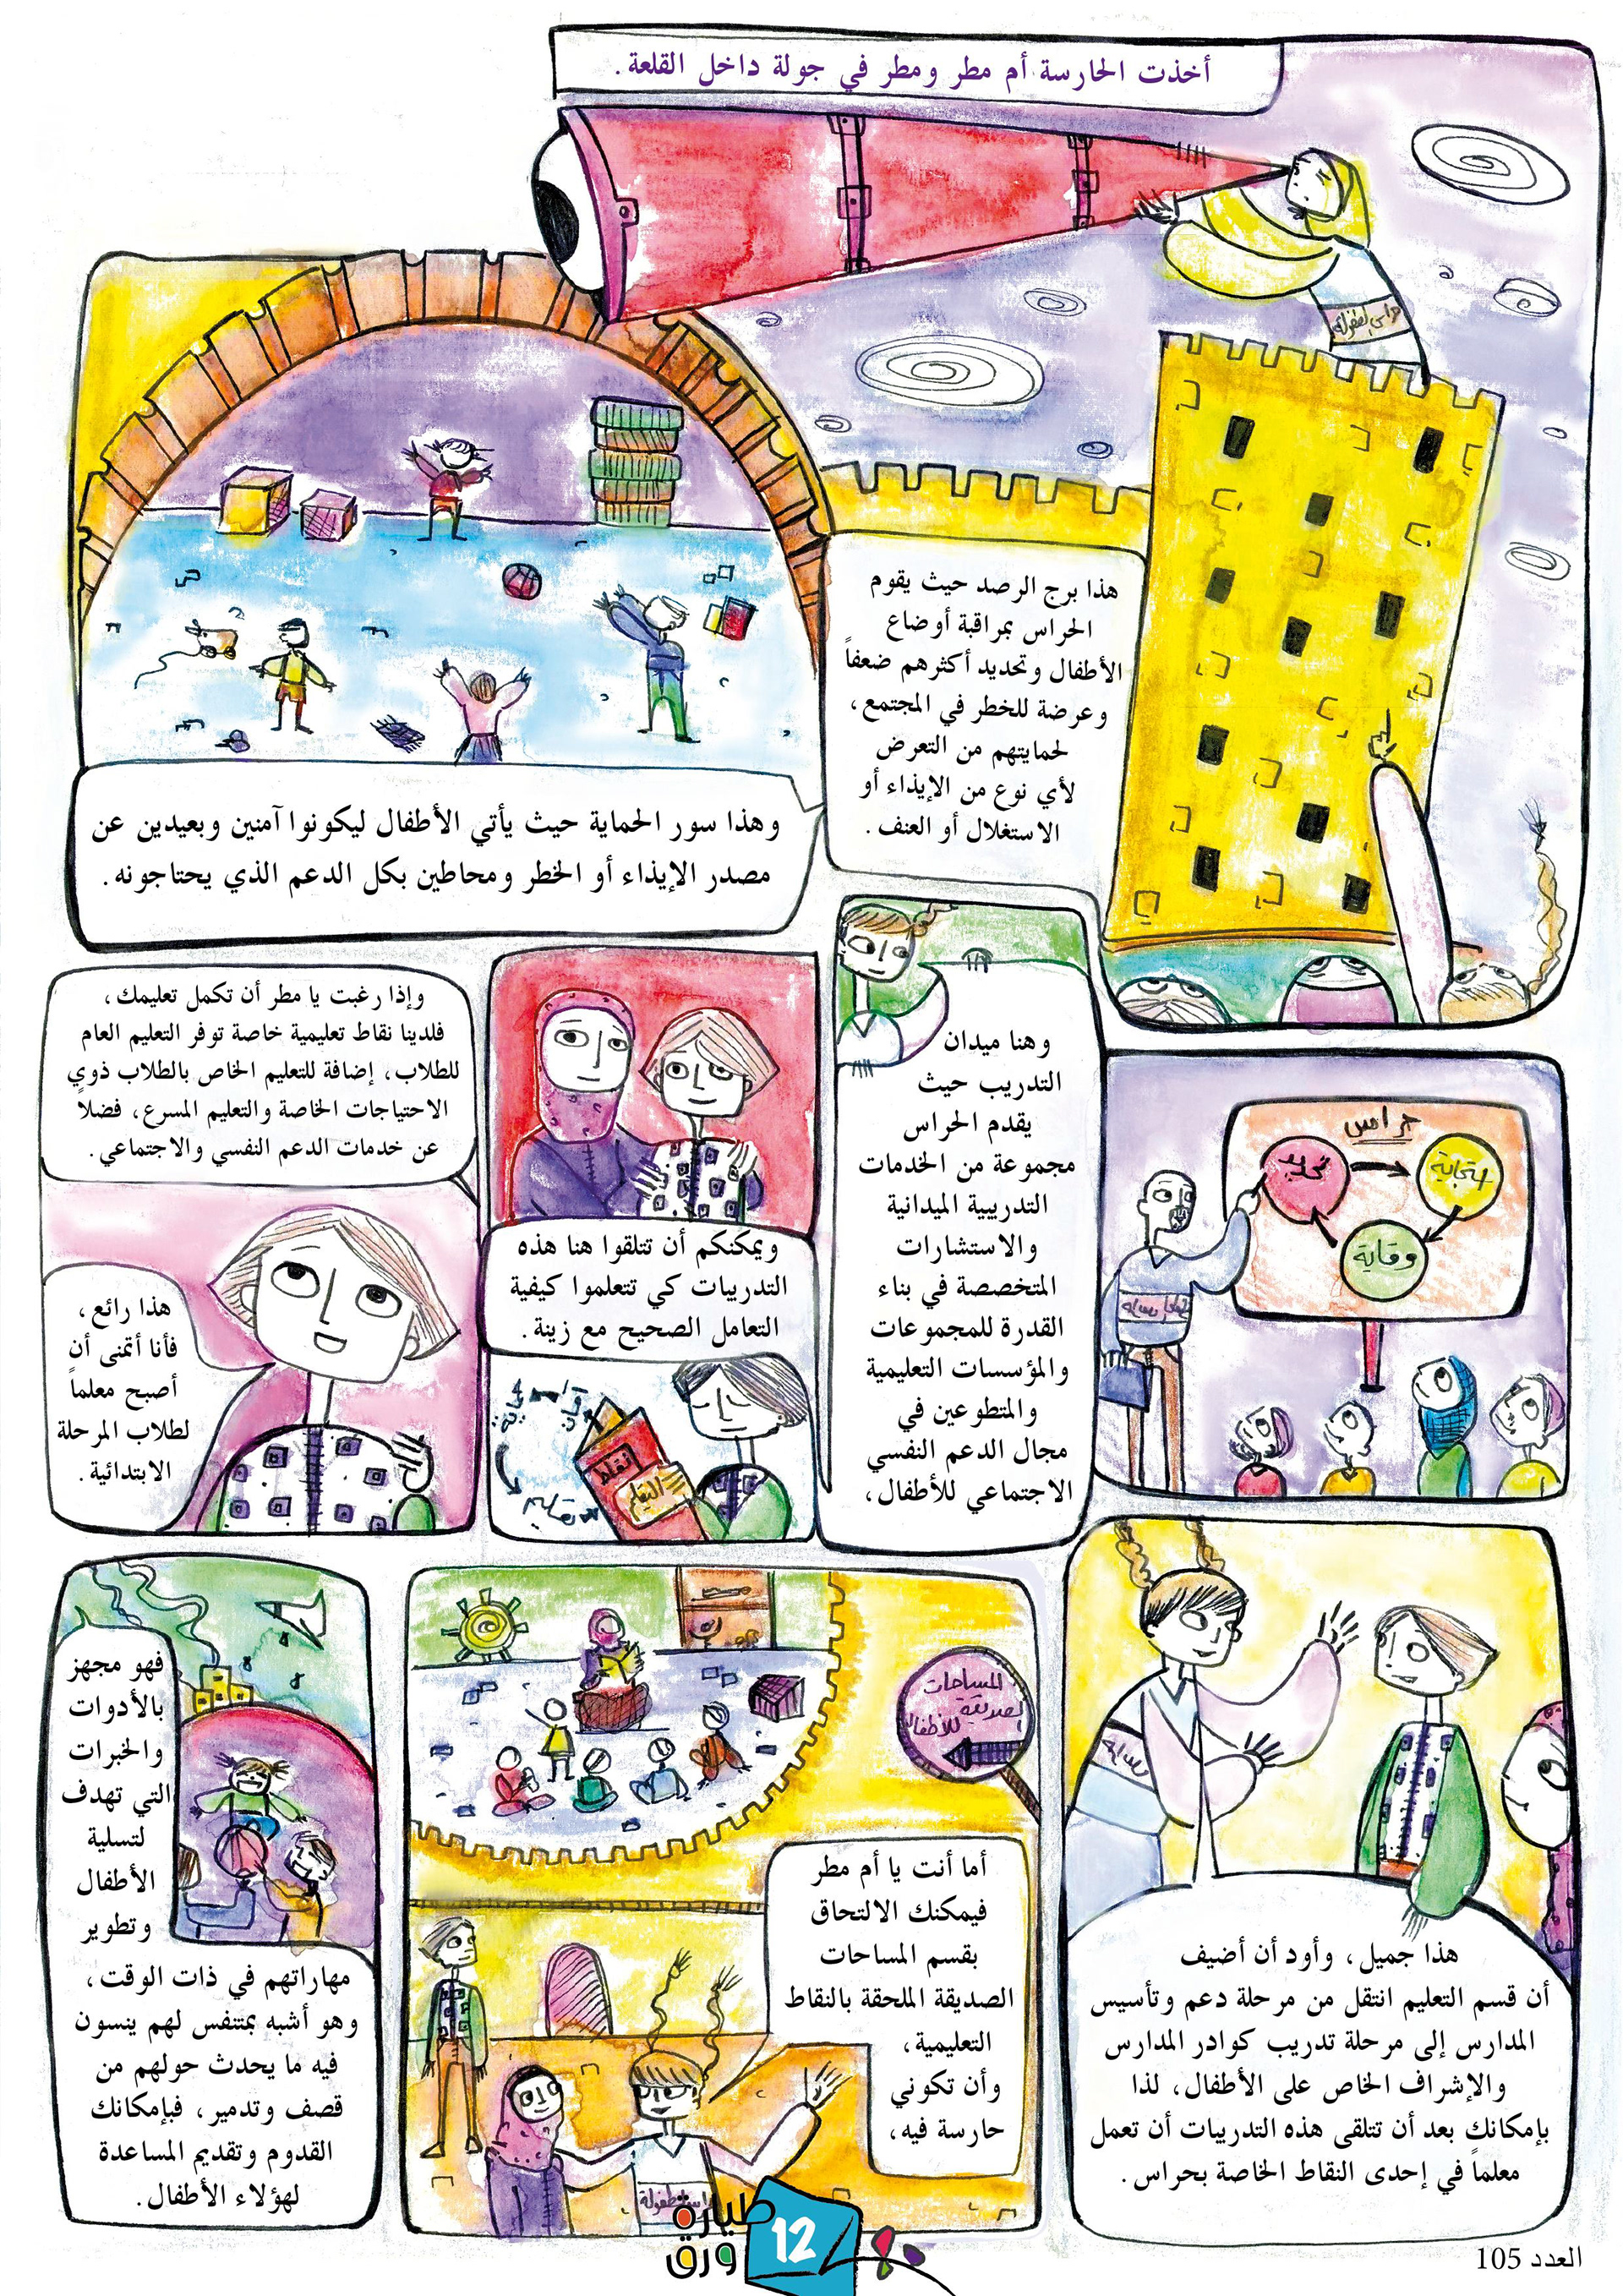 أخذت الحارسة أم مطر ومطر في جولة داخل القلعة.
حراس الطفولة
هذا برج الرصد حيث يقوم
الحراس بمراقبة أوضاع
الأطفال وتحديد أكثرهم ضعفاً
وعرضة للخطر في المجتمع،
لحمايتهم من التعرض
لأي نوع من الإيذاء أو
الاستغلال أو العنف.
وهذا سور الحماية حيث يأتي الأطفال ليكونوا آمنين وبعيدين عن
مصدر الإيذاء أو الخطر ومحاطين بكل الدعم الذي يحتاجونه.
حراس
تحديد
استجابة
وقاية
وهنا ميدان
التدريب حيث
يقدم الحراس
مجموعة من الخدمات
التدريبية الميدانية
والاستشارات
المتخصصة في بناء
القدرة للمجموعات
والمؤسسات التعليمية
والمتطوعين في
مجال الدعم النفسي
الاجتماعي للأطفال،
ويمكنكم أن تتلقوا هنا هذه
التدريبات كي تتعلموا كيفية
التعامل الصحيح مع زينة.
نقاط
التعلم
وإذا رغبت يا مطر أن تكمل تعليمك،
فلدينا نقاط تعليمية خاصة توفر التعليم العام
للطلاب، إضافة للتعليم الخاص بالطلاب ذوي
الاحتياجات الخاصة والتعليم المسرع، فضلاً
عن خدمات الدعم النفسي والاجتماعي.
هذا رائع،
فأنا أتمنى أن
أصبح معلماً
لطلاب المرحلة
الابتدائية.
هذا جميل، وأود أن أضيف
أن قسم التعليم انتقل من مرحلة دعم وتأسيس
المدارس إلى مرحلة تدريب كوادر المدارس
والإشراف الخاص على الأطفال، لذا
بإمكانك بعد أن تتلقى هذه التدريبات أن تعمل
معلماً في إحدى النقاط الخاصة بحراس.
المساحات
الصديقة
للأطفال
أما أنت يا أم مطر
فيمكنك الالتحاق
بقسم المساحات
الصديقة الملحقة بالنقاط
التعليمية،
وأن تكوني
حارسة فيه،
فهو مجهز
بالأدوات
والخبرات
التي تهدف
لتسلية
الأطفال
وتطوير
مهاراتهم في ذات الوقت،
وهو أشبه بمتنفس لهم ينسون
فيه ما يحدث حولهم من
قصف وتدمير، فبإمكانك
القدوم وتقديم المساعدة
لهؤلاء الأطفال.
طيارة
ورق
12
العدد 105